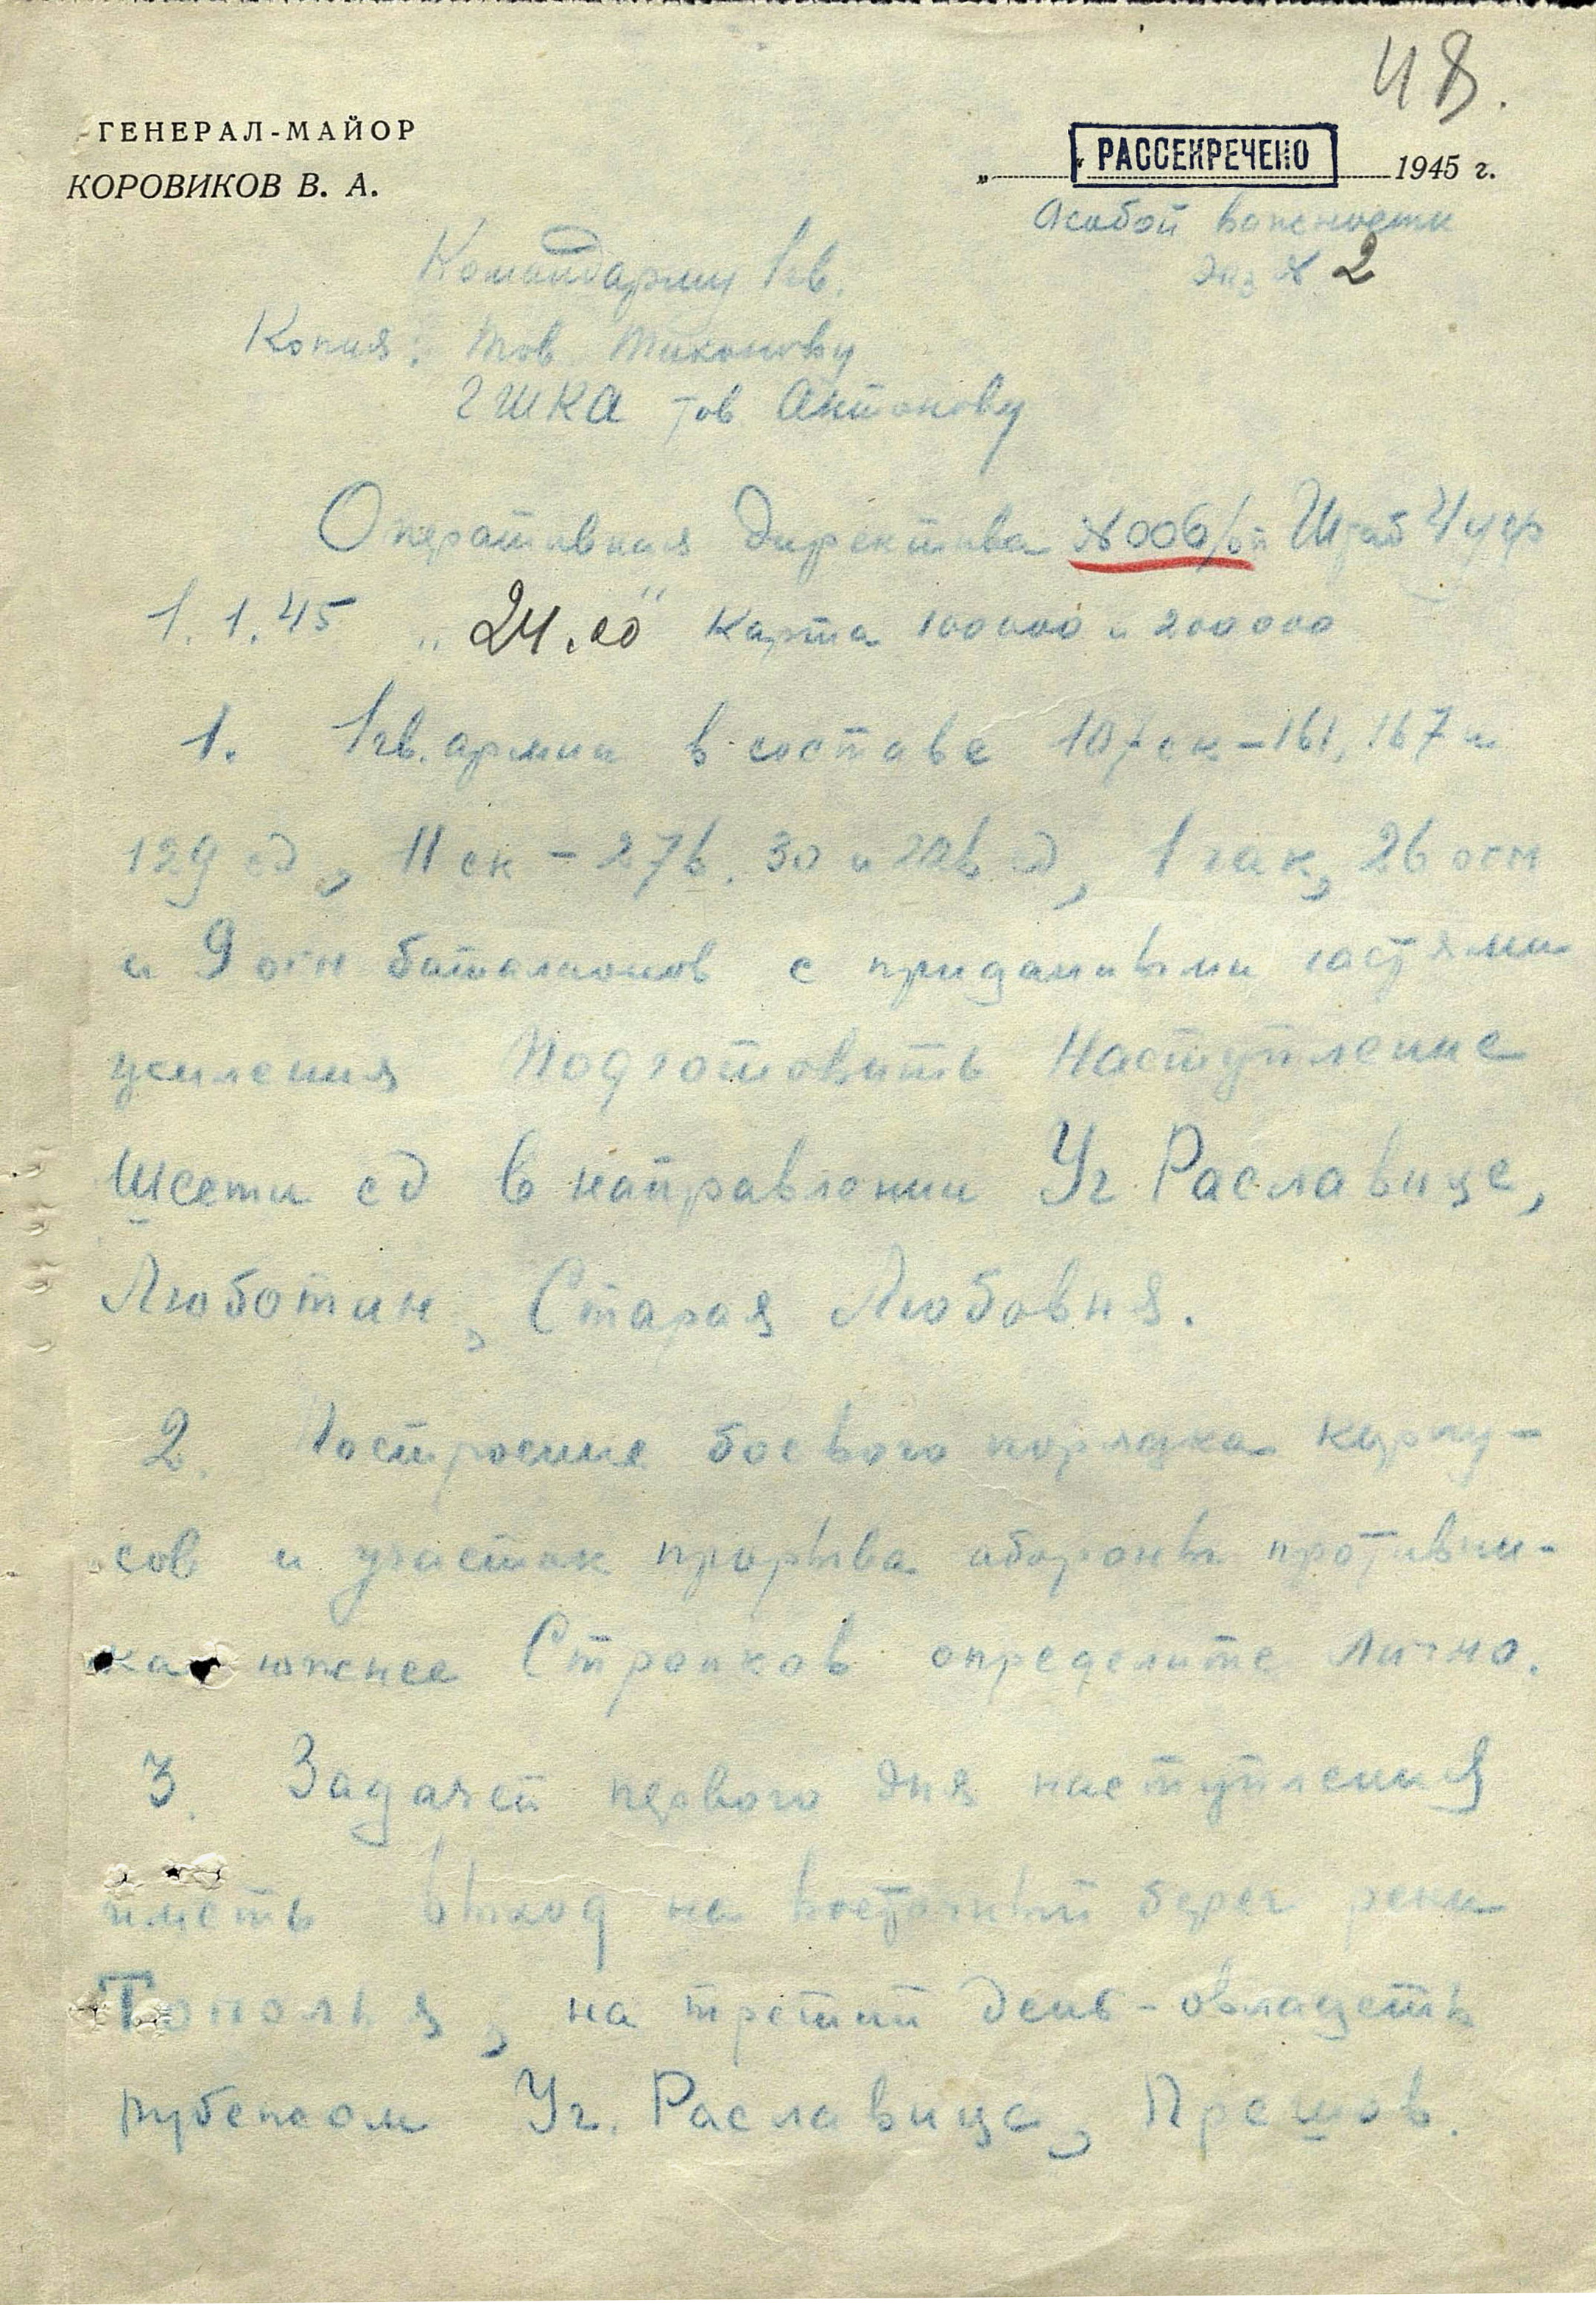 48.
ГЕНЕРАЛ-МАЙОР
КОРОВИКОВ В. А.
РАССЕКРЕЧЕНО
„ “ 1945 г.
Особой важности
Экз № 2
Командарму 1 гв.
Копия: Тов Тихонову
ГШКА тов Антонову
Оперативная директива №006/оп Штаб 4 укр
1.1.45 „24.00“ Карта 100000 и 200000
1. 1 гв. армии в составе 107 ск – 161, 167 и
129 сд, 11 ск – 276, 30 и 226 сд, 1 чак, 26 огн
и 9 огн батальонов с приданными частями
усиления Подготовить Наступление
Шести сд в направлении Уг Раславице,
Люботин, Старая Любовня.
2. Построение боевого порядка корпу-
сов и участок прорыва обороны противни-
ка южнее Стропков определите лично.
3. Задачей первого дня наступления
иметь выход на восточный берег реки
Тополья, на третий день – овладеть
рубежом Уг. Раславице, Прешов.